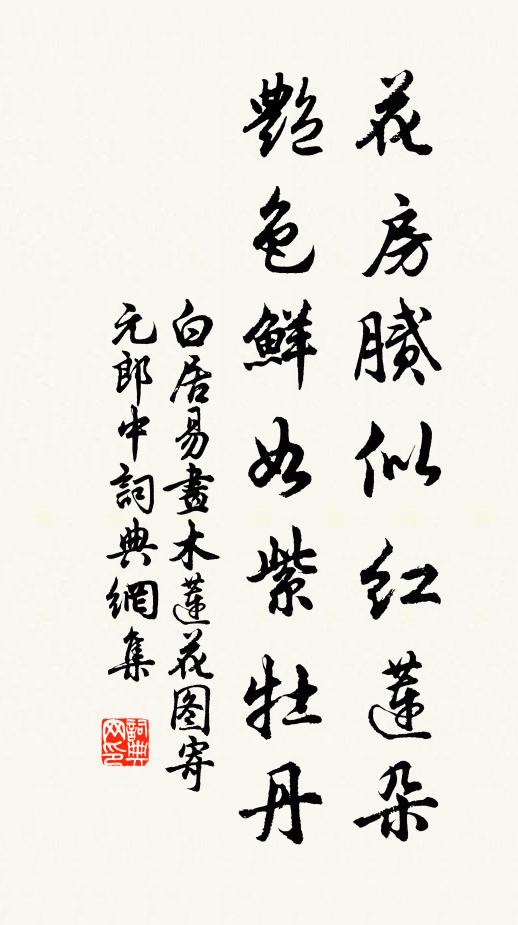 花房膩似紅蓮朵
艷色鮮如紫牡丹
白居易畫木蓮花图寄
元郎中詞典網集
詞典
网印